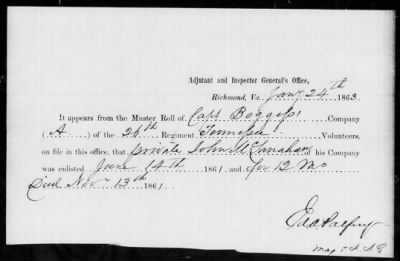 Adjutant and Inspector General's Office,
Richmond, Va. Jany 24th 1863.
It appears from the Muster Roll of Capt Boggess' Company
( A ) of the 26th Regiment Tennessee Volunteers,
on file in this office, that private John McClanahan of his Company
was enlisted June 14th 1861, and for 12 Mo
Died Nov. 13th 1861.
Ed A Palfrey
Maj & A A G